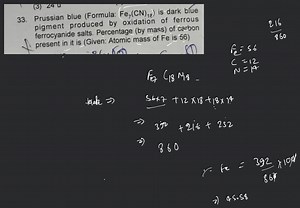 (3) 24 u
33. Prussian blue (Formula: Fe₇(CN)₁₈) is dark blue
pigment produced by oxidation of ferrous
ferrocyanide salts. Percentage (by mass) of carbon
present in it is (Given: Atomic mass of Fe is 56)
216
860
Fe = 56
C = 12
N = 14
Fe₇ C₁₈ N₁₈
⇒ 56×7 + 12×18 + 18×14
⇒ + 216 + 252
⇒ 860
392